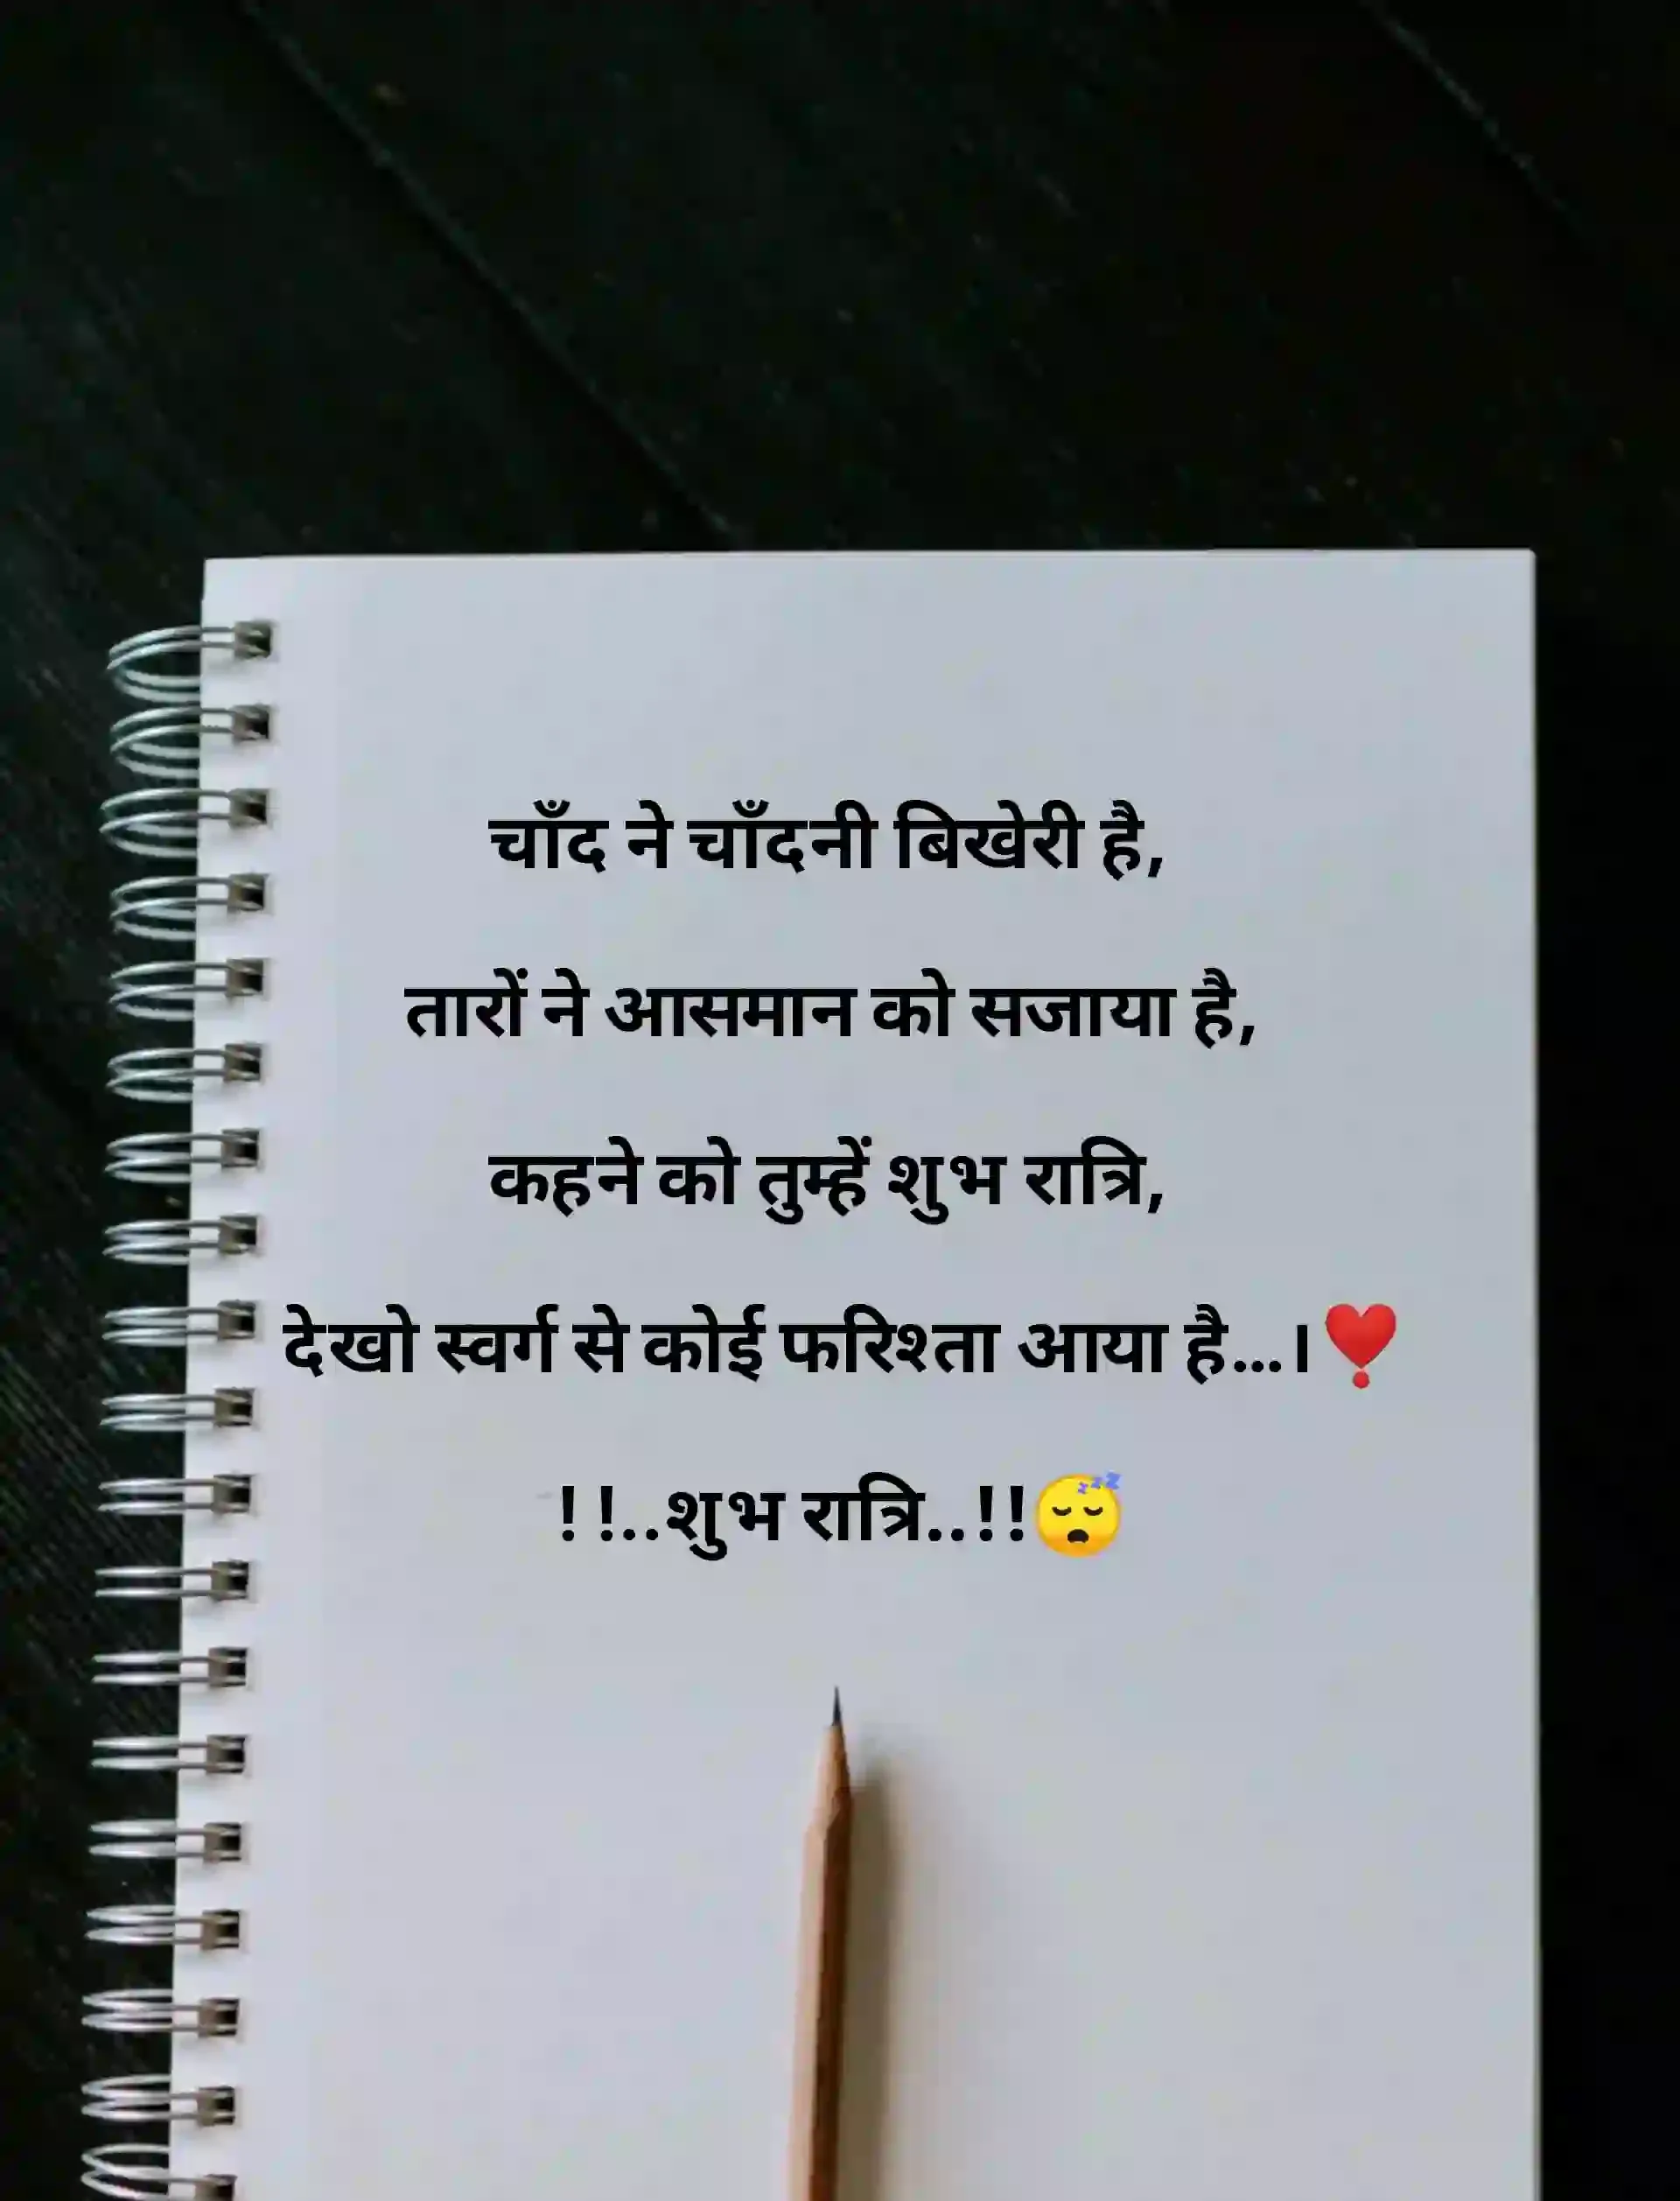 चाँद ने चाँदनी बिखेरी है,
तारों ने आसमान को सजाया है,
कहने को तुम्हें शुभ रात्रि,
देखो स्वर्ग से कोई फरिश्ता आया है...।❣️
! !..शुभ रात्रि..!!😴